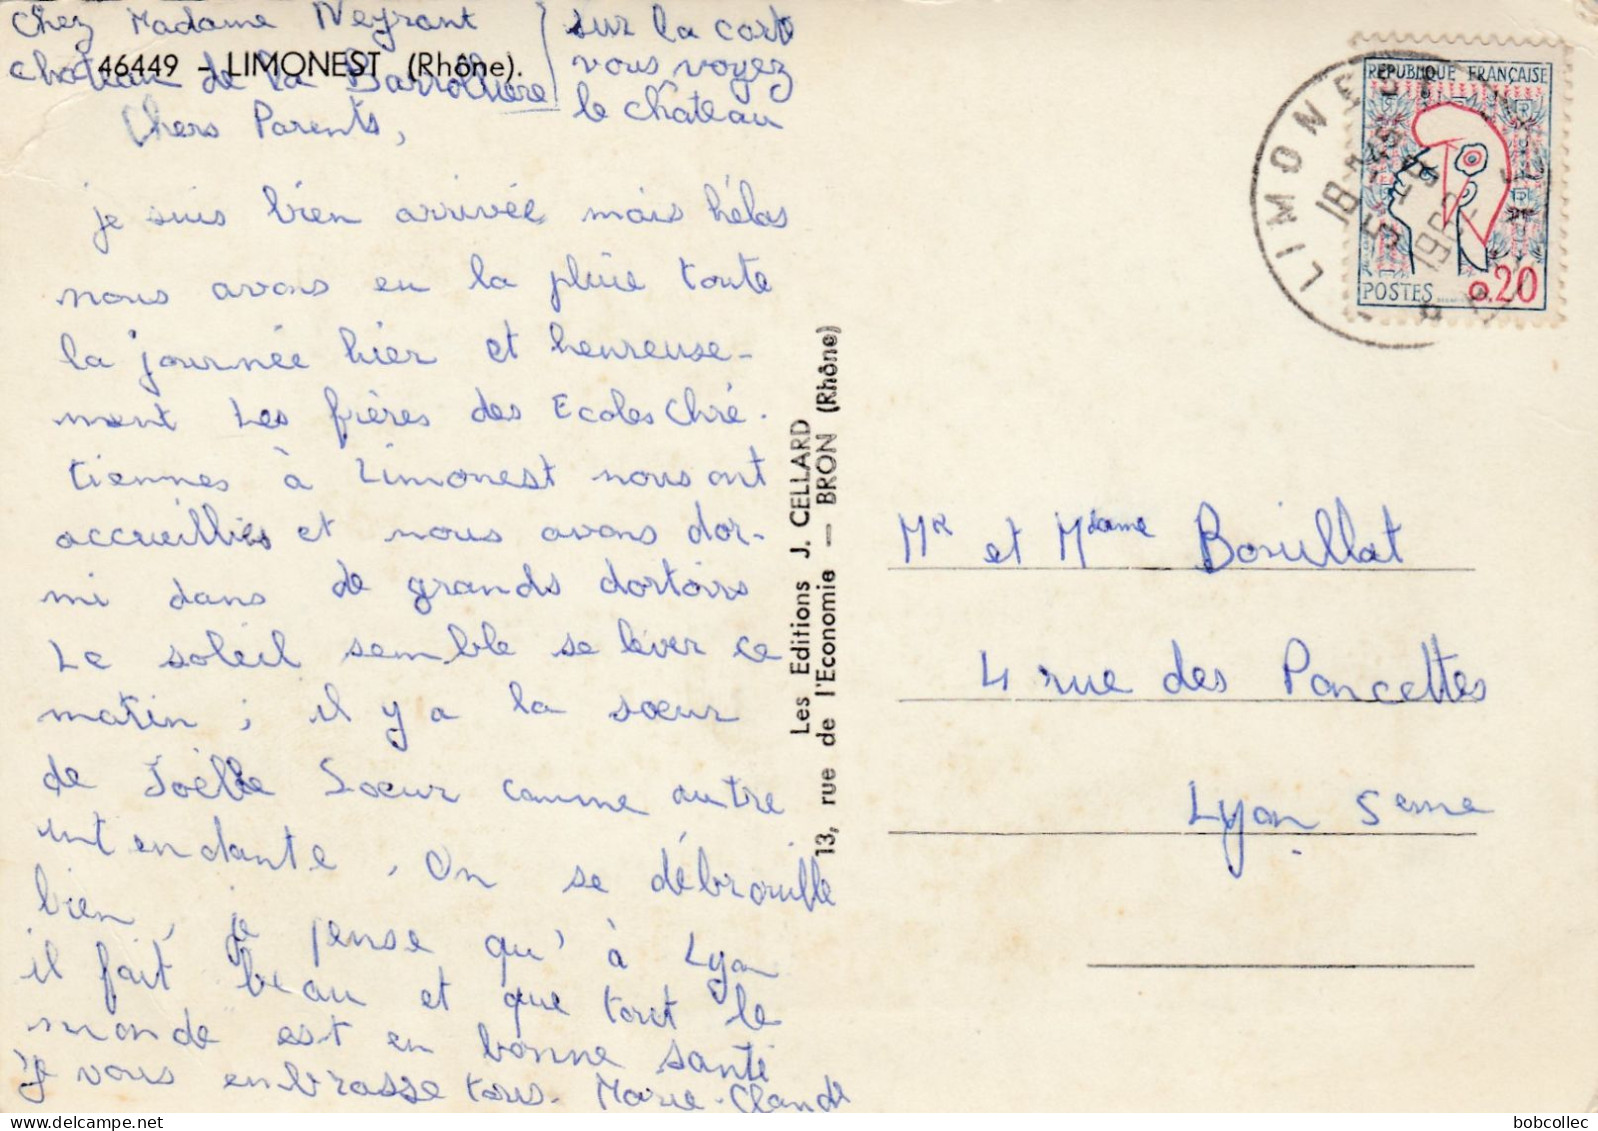 Chez Madame Neyrant
chateau de la Barrollière
sur la carte
vous voyez
le chateau
46449 - LIMONEST (Rhône).
Chers Parents,
je suis bien arrivée mais hélas
nous avons eu la pluie toute
la journée hier et heureuse-
ment les frères des Ecoles Chré-
tiennes à Limonest nous ont
accueillies et nous avons dor-
mi dans de grands dortoirs
Le soleil semble se lever ce
matin ; il y a la sœur
de Joëlle Soeur comme autre
intendante. On se débrouille
bien, je pense qu'à Lyon
il fait beau et que tout le
monde est en bonne santé
Je vous embrasse tous. Marie-Claude
Les Editions J. CELLARD
13, rue de l'Economie — BRON (Rhône)
LIMONEST
18-
1962
REPUBLIQUE FRANÇAISE
POSTES 0,20
Mr et Mdame Bouillat
4 rue des Poncettes
Lyon 5eme
bobcollec